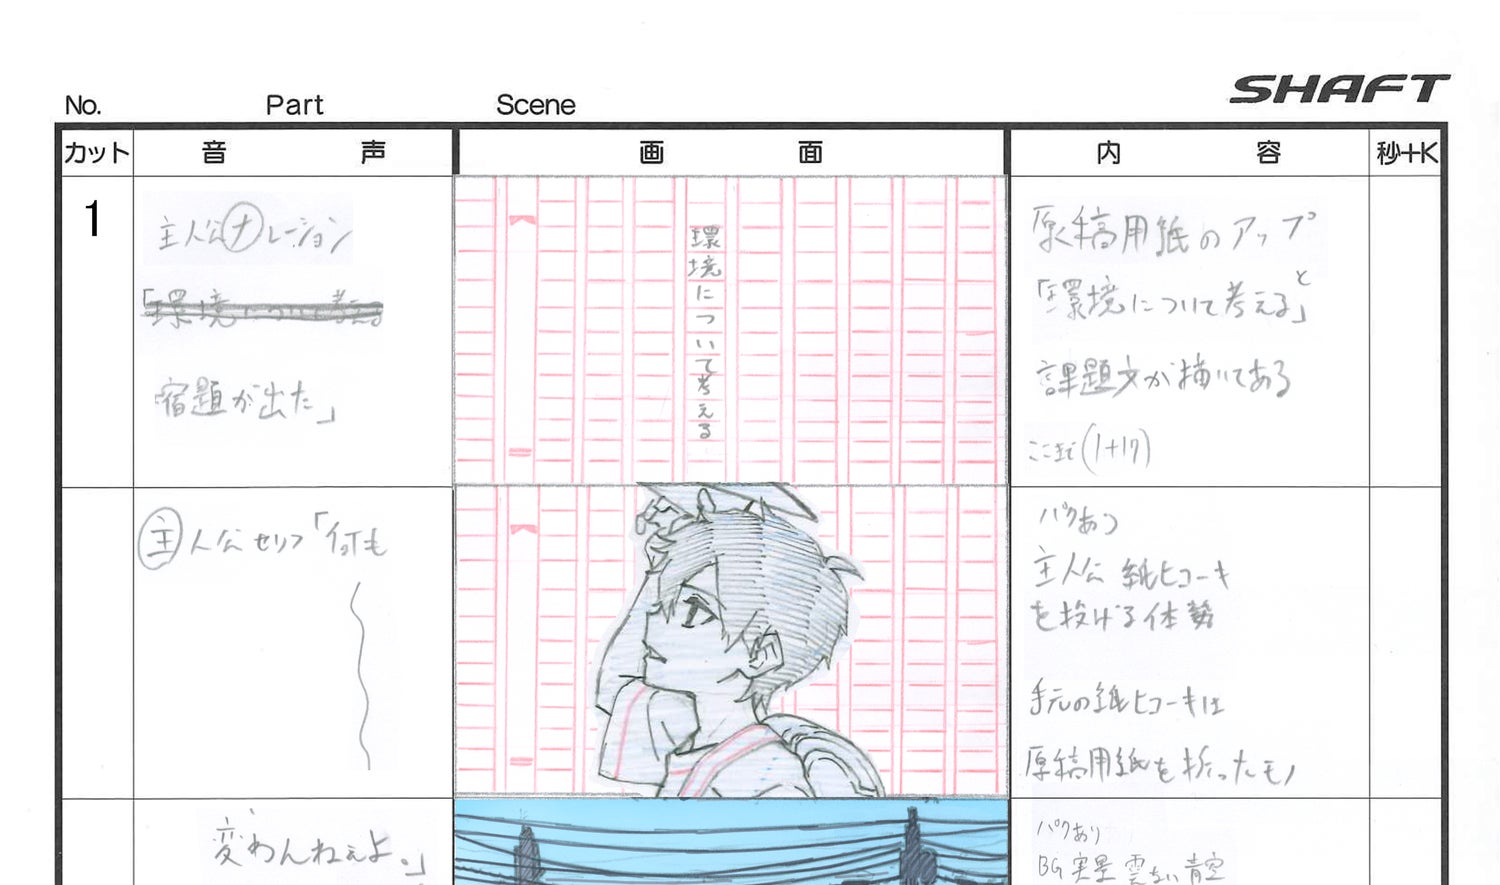 SHAFT
No. Part Scene
カット 音 声 画 面 内 容 秒+K
1
主人公ナレーション
「環境について考える
宿題が出た」
環境について考える
原稿用紙のアップ
「環境について考える」と
課題文が描いてある
ここまで(1+17)
主人公セリフ「何も
パクあり
主人公 紙ヒコーキ
を投げる体勢
手元の紙ヒコーキは
原稿用紙を折ったモノ
変わんねぇよ。」
パクあり
BG 実景 雲ない青空